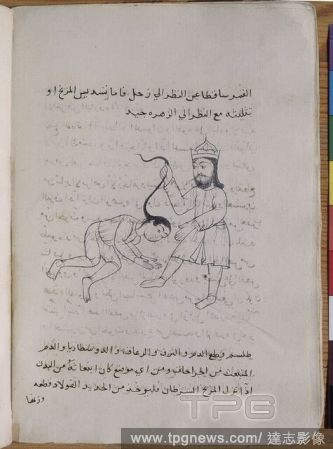 القمر ساقطا عن النظر الى زحل فاما تسديس المريخ او
تثليثه مع النظر الى الزهره جيد
طلسم لقطع الدم و النزف و الرعاف و الدوسنطاريا و الدم
المنبعث من الجراحات ومن اي موضع كان انبعاثه من البدن
اذا نزل المريخ السرطان فليوخذ من الحديد الفولاد قطعه
وزنها
TPG
www.tpgnews.com / 達志影像